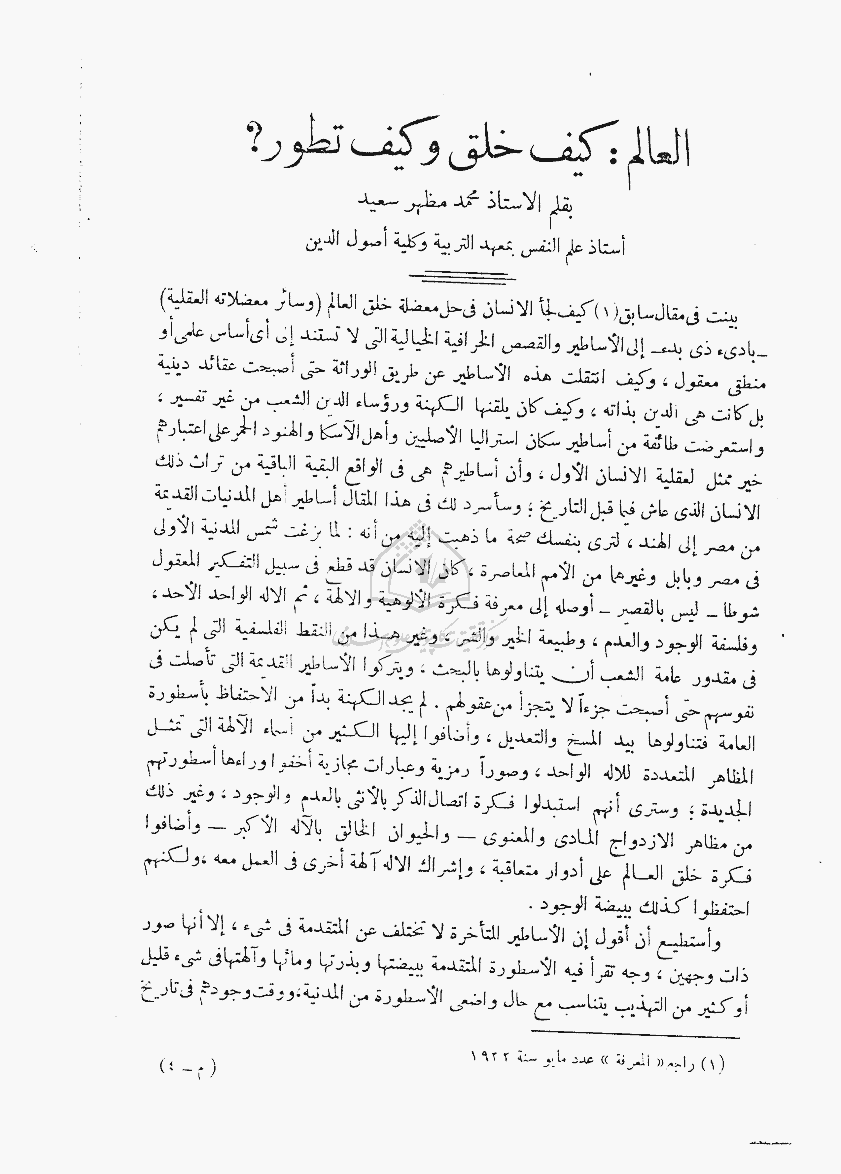 العالم : كيف خلق وكيف تطور ؟
بقلم الاستاذ محمد مظهر سعيد
أستاذ علم النفس بمعهد التربية وكلية أصول الدين
بينت فى مقال سابق (١) كيف لجأ الانسان فى حل معضلة خلق العالم (وسائر معضلاته العقلية)
ــ بادىء ذى بدء ــ إلى الأساطير والقصص الخرافية الخيالية التى لا تستند إلى أى أساس علمى أو
منطقى معقول ، وكيف انتقلت هذه الأساطير عن طريق الوراثة حتى أصبحت عقائد دينية
بل كانت هى الدين بذاته ، وكيف كان يلقنها الكهنة ورؤساء الدين الشعب من غير تفسير ،
واستعرضت طائفة من أساطير سكان استراليا الأصليين وأهل الآسكا والهنود الحمر على اعتبارهم
خير ممثل لعقلية الانسان الأول ، وأن أساطيرهم هى فى الواقع البقية الباقية من تراث ذلك
الانسان الذى عاش فيما قبل التاريخ ؛ وسأسرد لك فى هذا المقال أساطير أهل المدنيات القديمة
من مصر إلى الهند ، لترى بنفسك صحة ما ذهبت إليه من أنه : لما بزغت شمس المدنية الأولى
فى مصر وبابل وغيرها من الأمم المعاصرة ، كان الانسان قد قطع فى سبيل التفكير المعقول
شوطا ــ ليس بالقصير ــ أوصله إلى معرفة فكرة الألوهية والالهة ، ثم الاله الواحد الأحد ،
وفلسفة الوجود والعدم ، وطبيعة الخير والشر ، وغير هذا من النقط الفلسفية التى لم يكن
فى مقدور عامة الشعب أن يتناولوها بالبحث ، ويتركوا الأساطير القديمة التى تأصلت فى
نفوسهم حتى أصبحت جزءاً لا يتجزأ من عقولهم . لم يجد الكهنة بدأ من الاحتفاظ بأسطورة
العامة فتناولوها بيد المسخ والتعديل ، وأضافوا إليها الكثير من أسماء الآلهة التى تمثل
المظاهر المتعددة للاله الواحد ، وصوراً رمزية وعبارات مجازية أخفوا وراءها أسطورتهم
الجديدة ؛ وسترى أنهم استبدلوا فكرة اتصال الذكر بالأنثى بالعدم والوجود ، وغير ذلك
من مظاهر الازدواج المادى والمعنوى ــ والحيوان الخالق بالآله الأكبر ــ وأضافوا
فكرة خلق العالم على أدوار متعاقبة ، وإشراك الاله آلهة أخرى فى العمل معه ، ولكنهم
احتفظوا كذلك ببيضة الوجود .
وأستطيع أن أقول إن الأساطير المتأخرة لا تختلف عن المتقدمة فى شىء ، إلا أنها صور
ذات وجهين ، وجه تقرأ فيه الأسطورة المتقدمة ببيضتها وبذرتها ومائها وآلهتها فى شىء قليل
أو كثير من التهذيب يتناسب مع حال واضعى الأسطورة من المدنية ، ووقت وجودهم فى تاريخ
(١) راجع « المعرفة » عدد مايو سنة ١٩٣٢
(م ــ ٤)